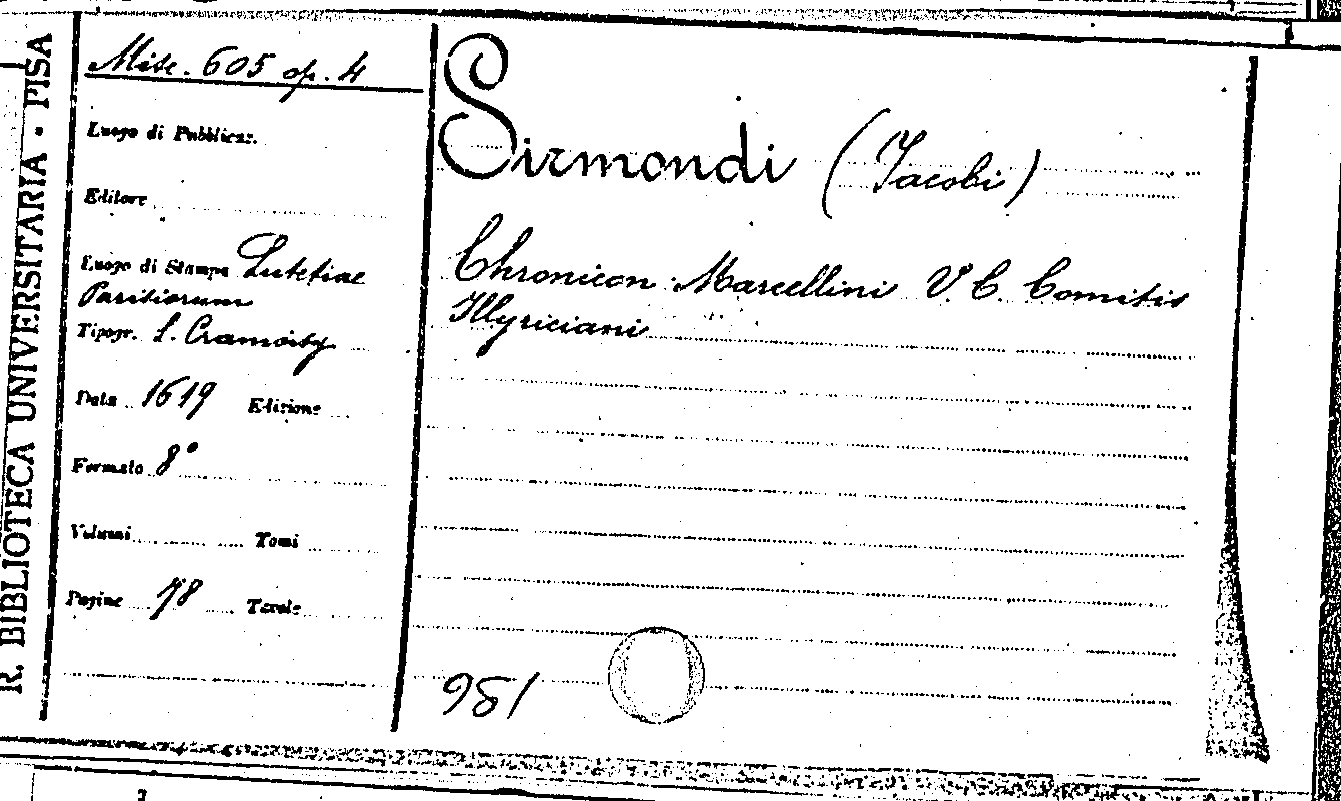 R. BIBLIOTECA UNIVERSITARIA - PISA
Misc. 605 op. 4
Luogo di Pubblicaz.
Editore
Luogo di Stampa Lutetiae
Parisiorum
Tipogr. S. Cramoisy
Data 1619 Edizione
Formato 8°
Volumi Tomi
Pagine 78 Tavole
Sirmondi (Jacobi)
Chronicon Marcellini V. C. Comitis
Illyriciani
981